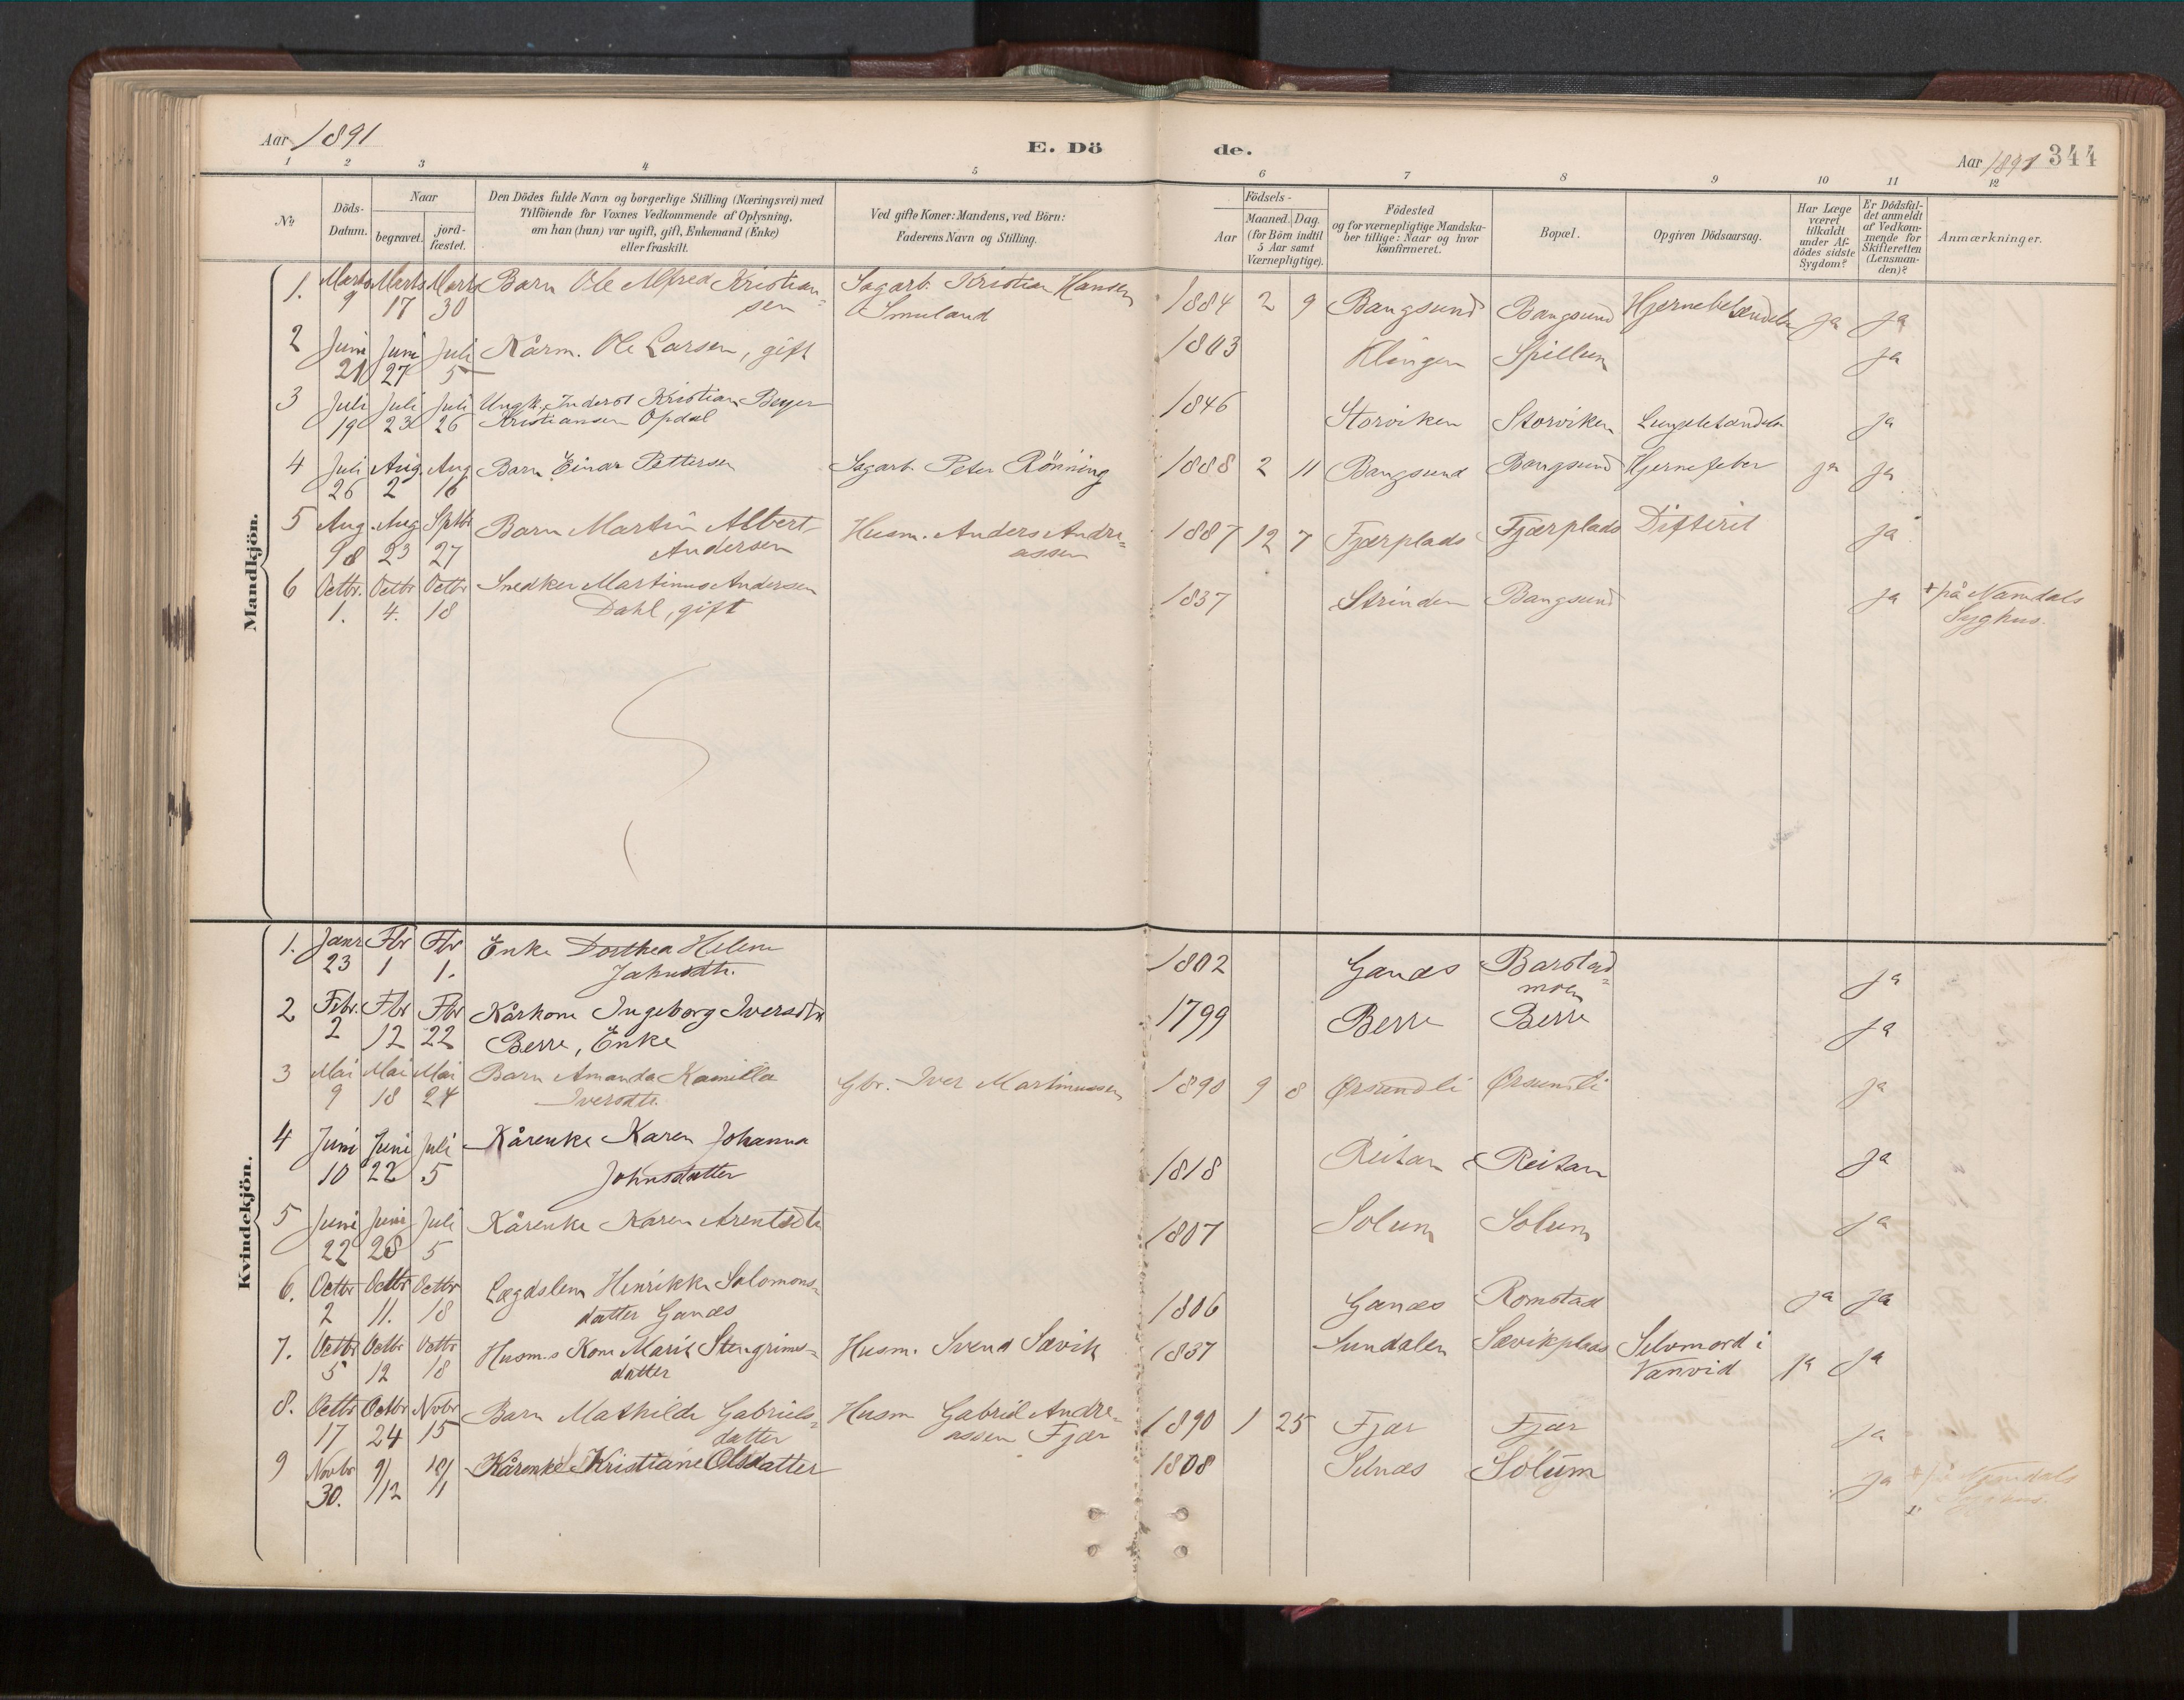 Aar 1891
E. Dö
de.
Aar 1891 344
1 2 3 4 5 6 7 8 9 10 11 12
No
Döds-
Datum.
Naar
begravet.
jord-
fæstet.
Den Dödes fulde Navn og borgerlige Stilling (Næringsvei) med
Tilföiende for Voxnes Vedkommende af Oplysning,
om han (hun) var ugift, gift, Enkemand (Enke)
eller fraskilt.
Ved gifte Koner: Mandens, ved Börn:
Faderens Navn og Stilling.
Födsels-
Aar
Maaned. Dag.
(for Börn indtil
5 Aar samt
Værnepligtige).
Födested
og for værnepligtige Mandska-
ber tillige: Naar og hvor
konfirmeret.
Bopæl.
Opgiven Dödsaarsag.
Har Læge
været
tilkaldt
under Af-
dödes sidste
Sygdom?
Er Dödsfal-
det anmeldt
af Vedkom-
mende for
Skifteretten
(Lensman-
den)?
Anmærkninger.
Mandkjön.
1. Marts Marts Marts Barn Ole Alfred Kristian= Sagarb. Kristian Hansen 1884 2 9 Bangsund Bangsund Hjernebetændelse ja ja
9 17 30 sen Smuland
2 Juni Juni Juli Kårm. Ole Larsen, gift 1803 Klingen Spillum ja
21 27 5
3 Juli Juli Juli Ungk. Inderst Kristian Beyer 1846 Storviken Storviken Lungebetændelse ja
19 23 26 Kristiansen Opdal
4 Juli Aug. Aug Barn Einar Pettersen Sagarb. Peter Rönning 1888 2 11 Bangsund Bangsund Hjernefeber ja ja
26 2 16
5 Aug. Aug Sptbr Barn Martin Albert Husm. Anders Andre= 1887 12 7 Fjærplads Fjærplads Difterit ja
18 23 27 Andersen assen
6 Octbr. Octbr Octbr Snedker Martinus Andersen 1837 Strinden Bangsund ja + på Namdals
1. 4. 18 Dahl, gift Syghus.
Kvindekjön.
1. Janr Fbr Fbr Enke Dorthea Helene 1802 Ganæs Barstad= ja
23 1 1. Jahnsdtr. moen
2 Febr. Fbr Fbr Kårkone Ingeborg Iversdtr 1799 Berre Berre ja
2 12 22 Berre, Enke
3 Mai Mai Mai Barn Amanda Kamilla Gbr. Iver Martinussen 1890 9 8 Ørsundli Ørsundli ja
9 18 24 Iversdtr.
4 Juni Juni Juli Kårenke Karen Johanna 1818 Reitan Reitan ja
10 22 5 Johnsdatter
5 Juni Juni Juli Kårenke Karen Arentsdtr 1807 Solum Solum ja
22 28 5
6. Octbr Octbr Octbr Lægdslem Henrikke Solomons= 1806 Ganæs Romstad ja ja
2 11. 18 datter Ganæs
7. Octbr Octbr Octbr Husm.s Kone Marit Stengrims= Husm. Svend Sævik 1837 Sundalen Sævikplads Selvmord i ja ja
5 12 18 datter Vanvid
8. Octbr Octbr Novbr Barn Mathilde Gabriels= Husm Gabriel Andre= 1890 1 25 Fjær Fjær ja
17 24 15 datter assen Fjær
9 Novbr 9/12 10/1 Kårenke Kristiane Olsdatter 1808 Selnæs Solum ja + på Namdals
30. Syghus.